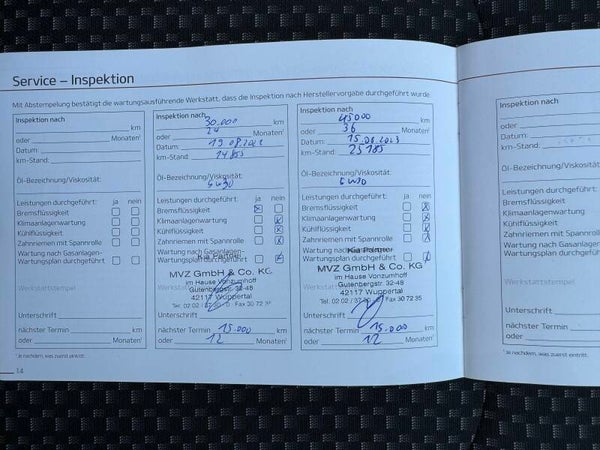 Service – Inspektion
Mit Abstempelung bestätigt die wartungsausführende Werkstatt, dass die Inspektion nach Herstellervorgabe durchgeführt wurde.
Inspektion nach
km
oder Monaten¹
Datum:
km-Stand:
Öl-Bezeichnung/Viskosität:
Leistungen durchgeführt: ja nein
Bremsflüssigkeit
Klimaanlagenwartung
Kühlflüssigkeit
Zahnriemen mit Spannrolle
Wartung nach Gasanlagen-
Wartungsplan durchgeführt
Werkstattstempel
Unterschrift
nächster Termin km
oder Monaten¹
Inspektion nach
30.000 km
oder 24 Monaten¹
Datum:
km-Stand:
Öl-Bezeichnung/Viskosität:
5W30
Leistungen durchgeführt: ja nein
Bremsflüssigkeit
Klimaanlagenwartung
Kühlflüssigkeit
Zahnriemen mit Spannrolle
Wartung nach Gasanlagen-
Wartungsplan durchgeführt
Kia Partner
MVZ GmbH & Co. KG
im Hause Vonzumhoff
Gutenbergstr. 32-48
42117 Wuppertal
Unterschrift
nächster Termin 15.000 km
oder 12 Monaten¹
Inspektion nach
45000 km
oder 36 Monaten¹
Datum: 15.08.2023
km-Stand: 25185
Öl-Bezeichnung/Viskosität:
5W30
Leistungen durchgeführt: ja nein
Bremsflüssigkeit
Klimaanlagenwartung
Kühlflüssigkeit
Zahnriemen mit Spannrolle
Wartung nach Gasanlagen-
Wartungsplan durchgeführt
Kia Partner
MVZ GmbH & Co. KG
im Hause Vonzumhoff
Gutenbergstr. 32-48
42117 Wuppertal
Unterschrift
nächster Termin 15.000 km
oder 12 Monaten¹
¹ Je nachdem, was zuerst eintritt.
14
Inspektion nach
oder
Datum:
km-Stand:
Öl-Bezeichnung/Visko
Leistungen durchgefü
Bremsflüssigkeit
Klimaanlagenwartun
Kühlflüssigkeit
Zahnriemen mit Spa
Wartung nach Gasa
Wartungsplan durch
Werkstattstempel
Unterschrift
nächster Termin
oder
¹ Je nachdem, was zuerst eintritt.